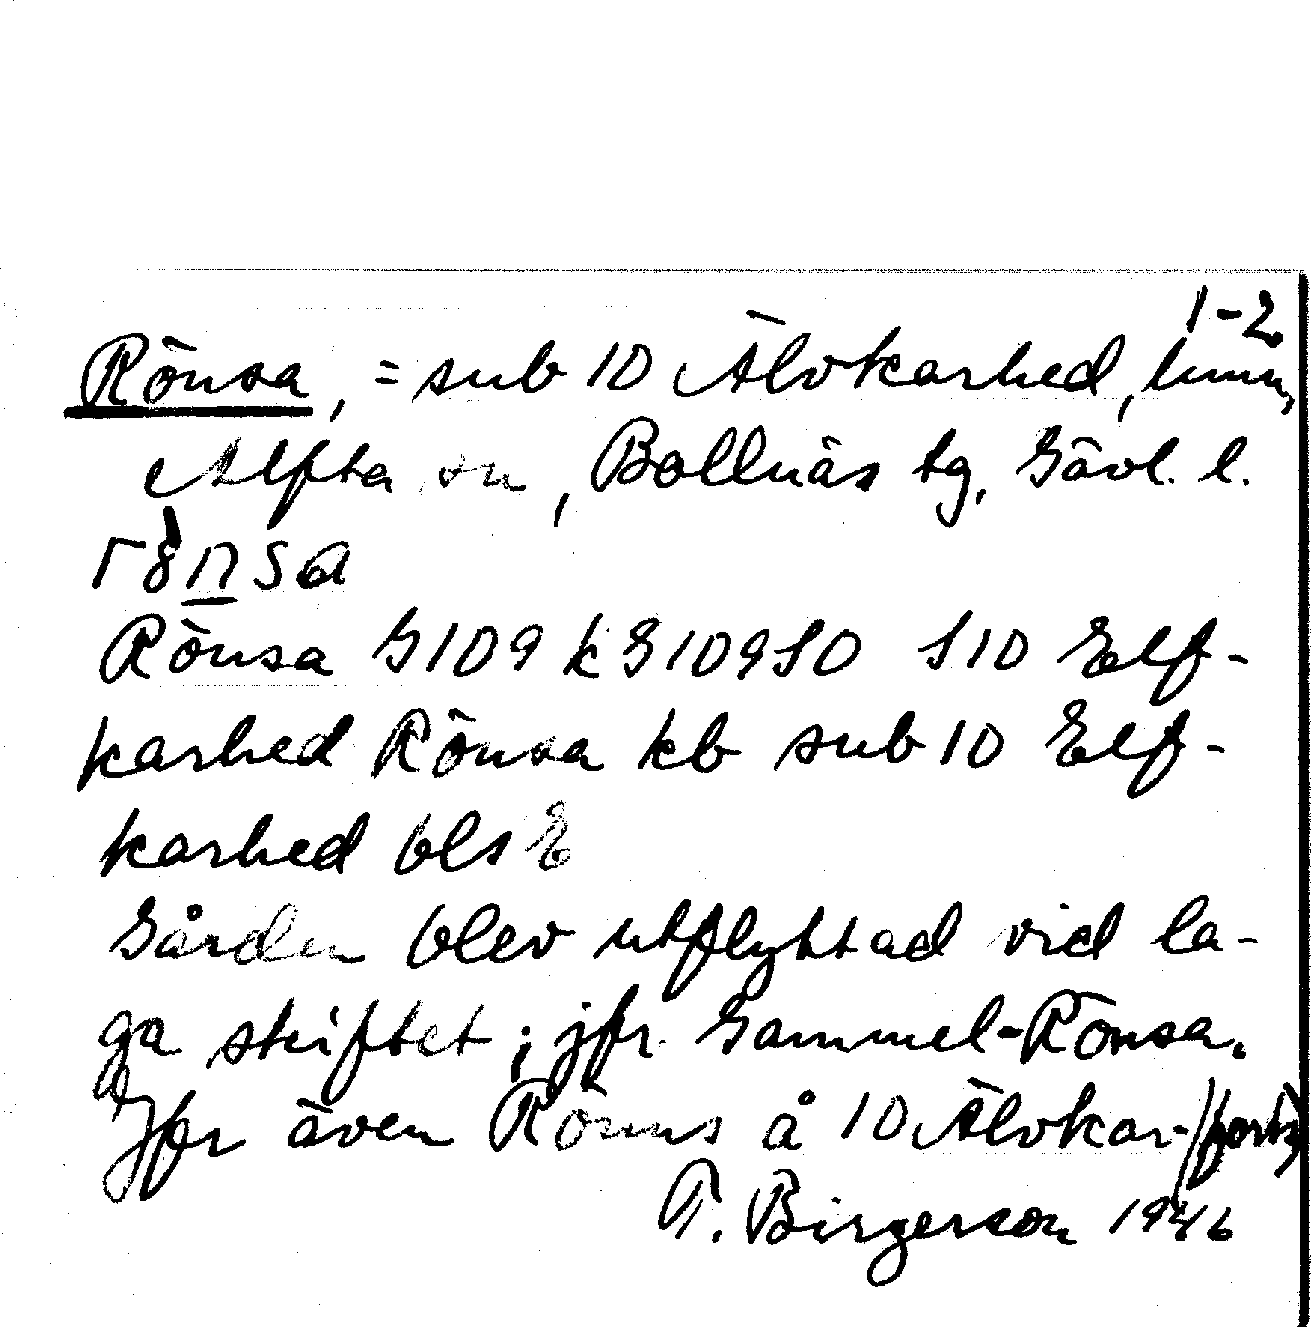 1-2
Rönsa, = sub 10 Älvkarhed, hmn,
Alfta sn, Bollnäs tg, Gävl. l.
Rönsa G109 k G109S0 S10 Elf-
karhed Rönsa kb sub 10 Elf-
karhed bls E
Gården blev utflyttad vid la-
ga skiftet; jfr. Gammel-Rönsa.
Jfr även Rönns å 10 Älvkar-/forts
T. Birgerson 1946